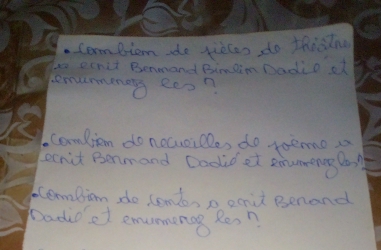 • Combien de pièces de théâtre
a ecrit Bernnand Binlin Dadié et
enumerez les ?
• Combien de recueilles de poème a
ecrit Bernnand Dadié et enumerez les ?
• Combien de contes a ecrit Benand
Dadié et enumerez les ?